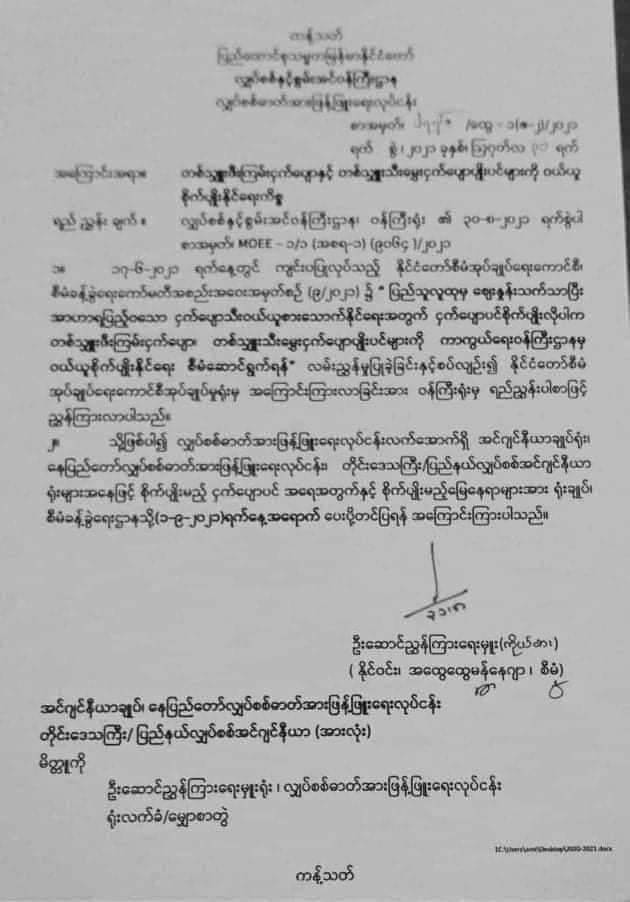 ကန့်သတ်
ပြည်ထောင်စုသမ္မတမြန်မာနိုင်ငံတော်
လျှပ်စစ်နှင့်စွမ်းအင်ဝန်ကြီးဌာန
လျှပ်စစ်ဓာတ်အားဖြန့်ဖြူးရေးလုပ်ငန်း
စာအမှတ်၊ /ထွေ - ၁(စ-၂)/၂၀၂၁
ရက် စွဲ ၊ ၂၀၂၁ ခုနှစ်၊ ဩဂုတ်လ ၃၁ ရက်
အကြောင်းအရာ။ တစ်သျှူးဖီးကြမ်းငှက်ပျောနှင့် တစ်သျှူးသီးမွှေးငှက်ပျောပျိုးပင်များကို ဝယ်ယူ
စိုက်ပျိုးနိုင်ရေးကိစ္စ
ရည် ညွှန်း ချက် ။ လျှပ်စစ်နှင့်စွမ်းအင်ဝန်ကြီးဌာန၊ ဝန်ကြီးရုံး ၏ ၃၀-၈-၂၀၂၁ ရက်စွဲပါ
စာအမှတ်၊ MOEE - ၁/၁ (အစရ-၁) (၉၀၆၄ )/၂၀၂၁
၁။ ၁၇-၆-၂၀၂၁ ရက်နေ့တွင် ကျင်းပပြုလုပ်သည့် နိုင်ငံတော်စီမံအုပ်ချုပ်ရေးကောင်စီ၊
စီမံခန့်ခွဲရေးကော်မတီအစည်းအဝေးအမှတ်စဉ် (၉/၂၀၂၁) ၌ " ပြည်သူလူထုမှ ဈေးနှုန်းသက်သာပြီး
အာဟာရပြည့်ဝသော ငှက်ပျောသီးဝယ်ယူစားသောက်နိုင်ရေးအတွက် ငှက်ပျောပင်စိုက်ပျိုးလိုပါက
တစ်သျှူးဖီးကြမ်းငှက်ပျော၊ တစ်သျှူးသီးမွှေးငှက်ပျောပျိုးပင်များကို ကာကွယ်ရေးဝန်ကြီးဌာနမှ
ဝယ်ယူစိုက်ပျိုးနိုင်ရေး စီမံဆောင်ရွက်ရန်" လမ်းညွှန်မှုပြုခဲ့ခြင်းနှင့်စပ်လျဉ်း၍ နိုင်ငံတော်စီမံ
အုပ်ချုပ်ရေးကောင်စီအုပ်ချုပ်မှုရုံးမှ အကြောင်းကြားလာခြင်းအား ဝန်ကြီးရုံးမှ ရည်ညွှန်းပါစာဖြင့်
ညွှန်ကြားလာပါသည်။
၂။ သို့ဖြစ်ပါ၍ လျှပ်စစ်ဓာတ်အားဖြန့်ဖြူးရေးလုပ်ငန်းလက်အောက်ရှိ အင်ဂျင်နီယာချုပ်ရုံး၊
နေပြည်တော်လျှပ်စစ်ဓာတ်အားဖြန့်ဖြူးရေးလုပ်ငန်း၊ တိုင်းဒေသကြီး/ပြည်နယ်လျှပ်စစ်အင်ဂျင်နီယာ
ရုံးများအနေဖြင့် စိုက်ပျိုးမည့် ငှက်ပျောပင် အရေအတွက်နှင့် စိုက်ပျိုးမည့်မြေနေရာများအား ရုံးချုပ်၊
စီမံခန့်ခွဲရေးဌာနသို့(၁-၉-၂၀၂၁)ရက်နေ့အရောက် ပေးပို့တင်ပြရန် အကြောင်းကြားပါသည်။
၃၁.၈
ဦးဆောင်ညွှန်ကြားရေးမှူး(ကိုယ်စား)
( နိုင်ဝင်း၊ အထွေထွေမန်နေဂျာ ၊ စီမံ)
အင်ဂျင်နီယာချုပ်၊ နေပြည်တော်လျှပ်စစ်ဓာတ်အားဖြန့်ဖြူးရေးလုပ်ငန်း
တိုင်းဒေသကြီး/ ပြည်နယ်လျှပ်စစ်အင်ဂျင်နီယာ (အားလုံး)
မိတ္တူကို
ဦးဆောင်ညွှန်ကြားရေးမှူးရုံး ၊ လျှပ်စစ်ဓာတ်အားဖြန့်ဖြူးရေးလုပ်ငန်း
ရုံးလက်ခံ/မျှောစာတွဲ
ကန့်သတ်